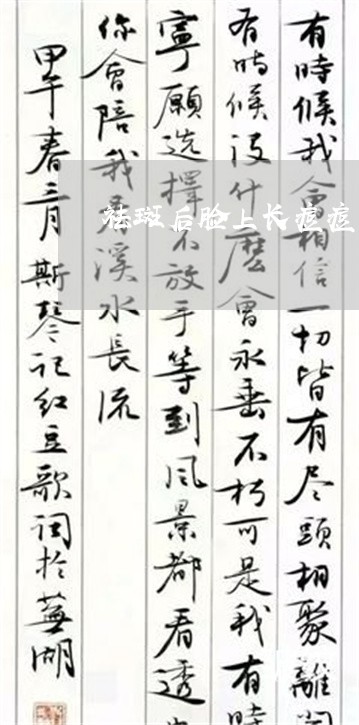 祛斑后脸上长痘痘
有時候我會相信一切皆有尽頭相聚離開
有時候没什麽會永垂不朽可是我有時
寧願选擇不放手等到风景都看透
你會陪我看溪水長流
甲午春三月斯琴记红豆歌词於蕪湖